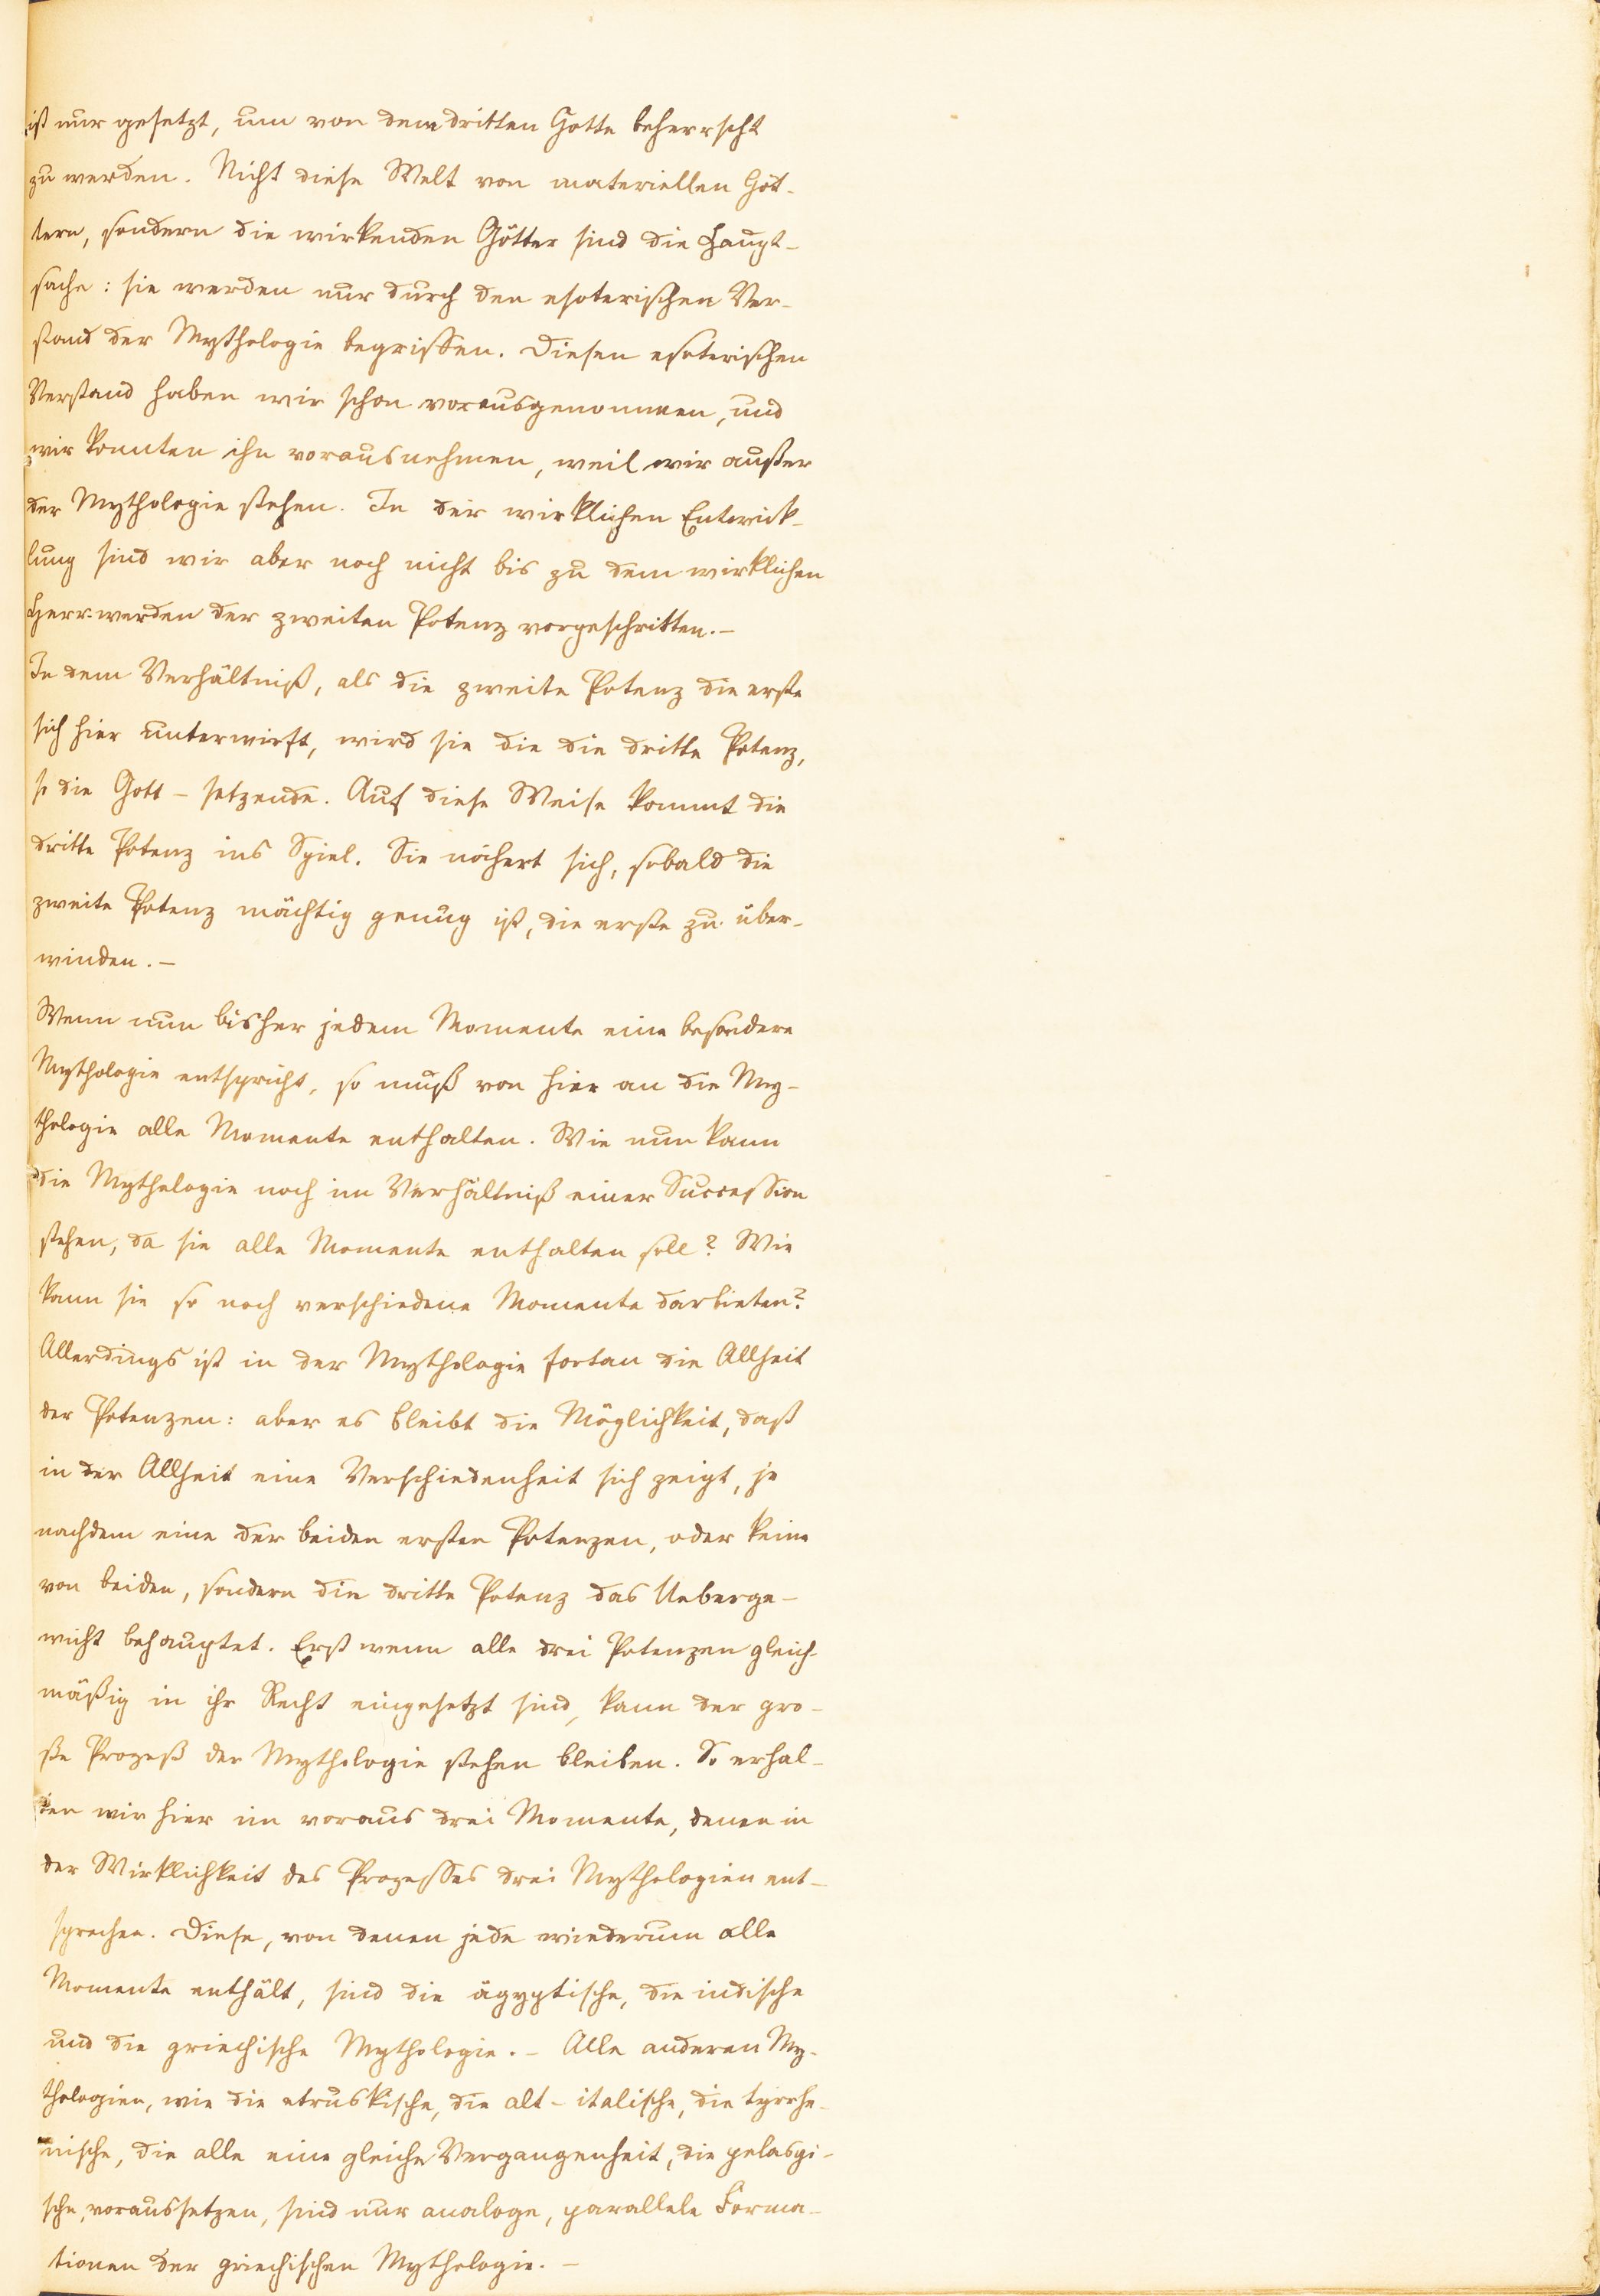 ist nur gesetzt, um von dem dritten Gotte beherrscht
zu werden. Nicht diese Welt von materiellen Göt-
tern, sondern die wirkenden Götter sind die Haupt-
sache: sie werden nur durch den esoterischen Ver-
stand der Mythologie begriffen. Diesen esoterischen
Verstand haben wir schon vorausgenommen, und
wir konnten ihn vorausnehmen, weil wir außer
der Mythologie stehen. In der wirklichen Entwick-
lung sind wir aber noch nicht bis zu dem wirklichen
Herr-werden der zweiten Potenz vorgeschritten. –
In dem Verhältniß, als die zweite Potenz die erste
sich hier unterwirft, wird sie die die dritte Potenz,
so die Gott-setzende. Auf diese Weise kommt die
dritte Potenz ins Spiel. Sie nähert sich, sobald die
zweite Potenz mächtig genug ist, die erste zu über-
winden. –
Wenn nun bisher jedem Momente eine besondere
Mythologie entspricht, so muß von hier an die My-
thologie alle Momente enthalten. Wie nun kann
die Mythologie noch im Verhältniß einer Succession
stehen, da sie alle Momente enthalten soll? Wie
kann sie so noch verschiedene Momente darbieten?
Allerdings ist in der Mythologie fortan die Allheit
der Potenzen: aber es bleibt die Möglichkeit, daß
in der Allheit eine Verschiedenheit sich zeigt, je
nachdem eine der beiden ersten Potenzen, oder keine
von beiden, sondern die dritte Potenz das Ueberge-
wicht behauptet. Erst wenn alle drei Potenzen gleich-
mäßig in ihr Recht eingesetzt sind, kann der gro-
ße Prozeß der Mythologie stehen bleiben. So erhal-
ten wir hier im voraus drei Momente, denen in
der Wirklichkeit des Prozesses drei Mythologien ent-
sprechen. Diese, von denen jede wiederum alle
Momente enthält, sind die ägyptische, die indische
und die griechische Mythologie. – Alle anderen My-
thologien, wie die etruskische, die alt-italische, die tyrrhe-
nische, die alle eine gleiche Vergangenheit, die pelasgi-
sche, voraussetzen, sind nur analoge, parallele Forma-
tionen der griechischen Mythologie. –